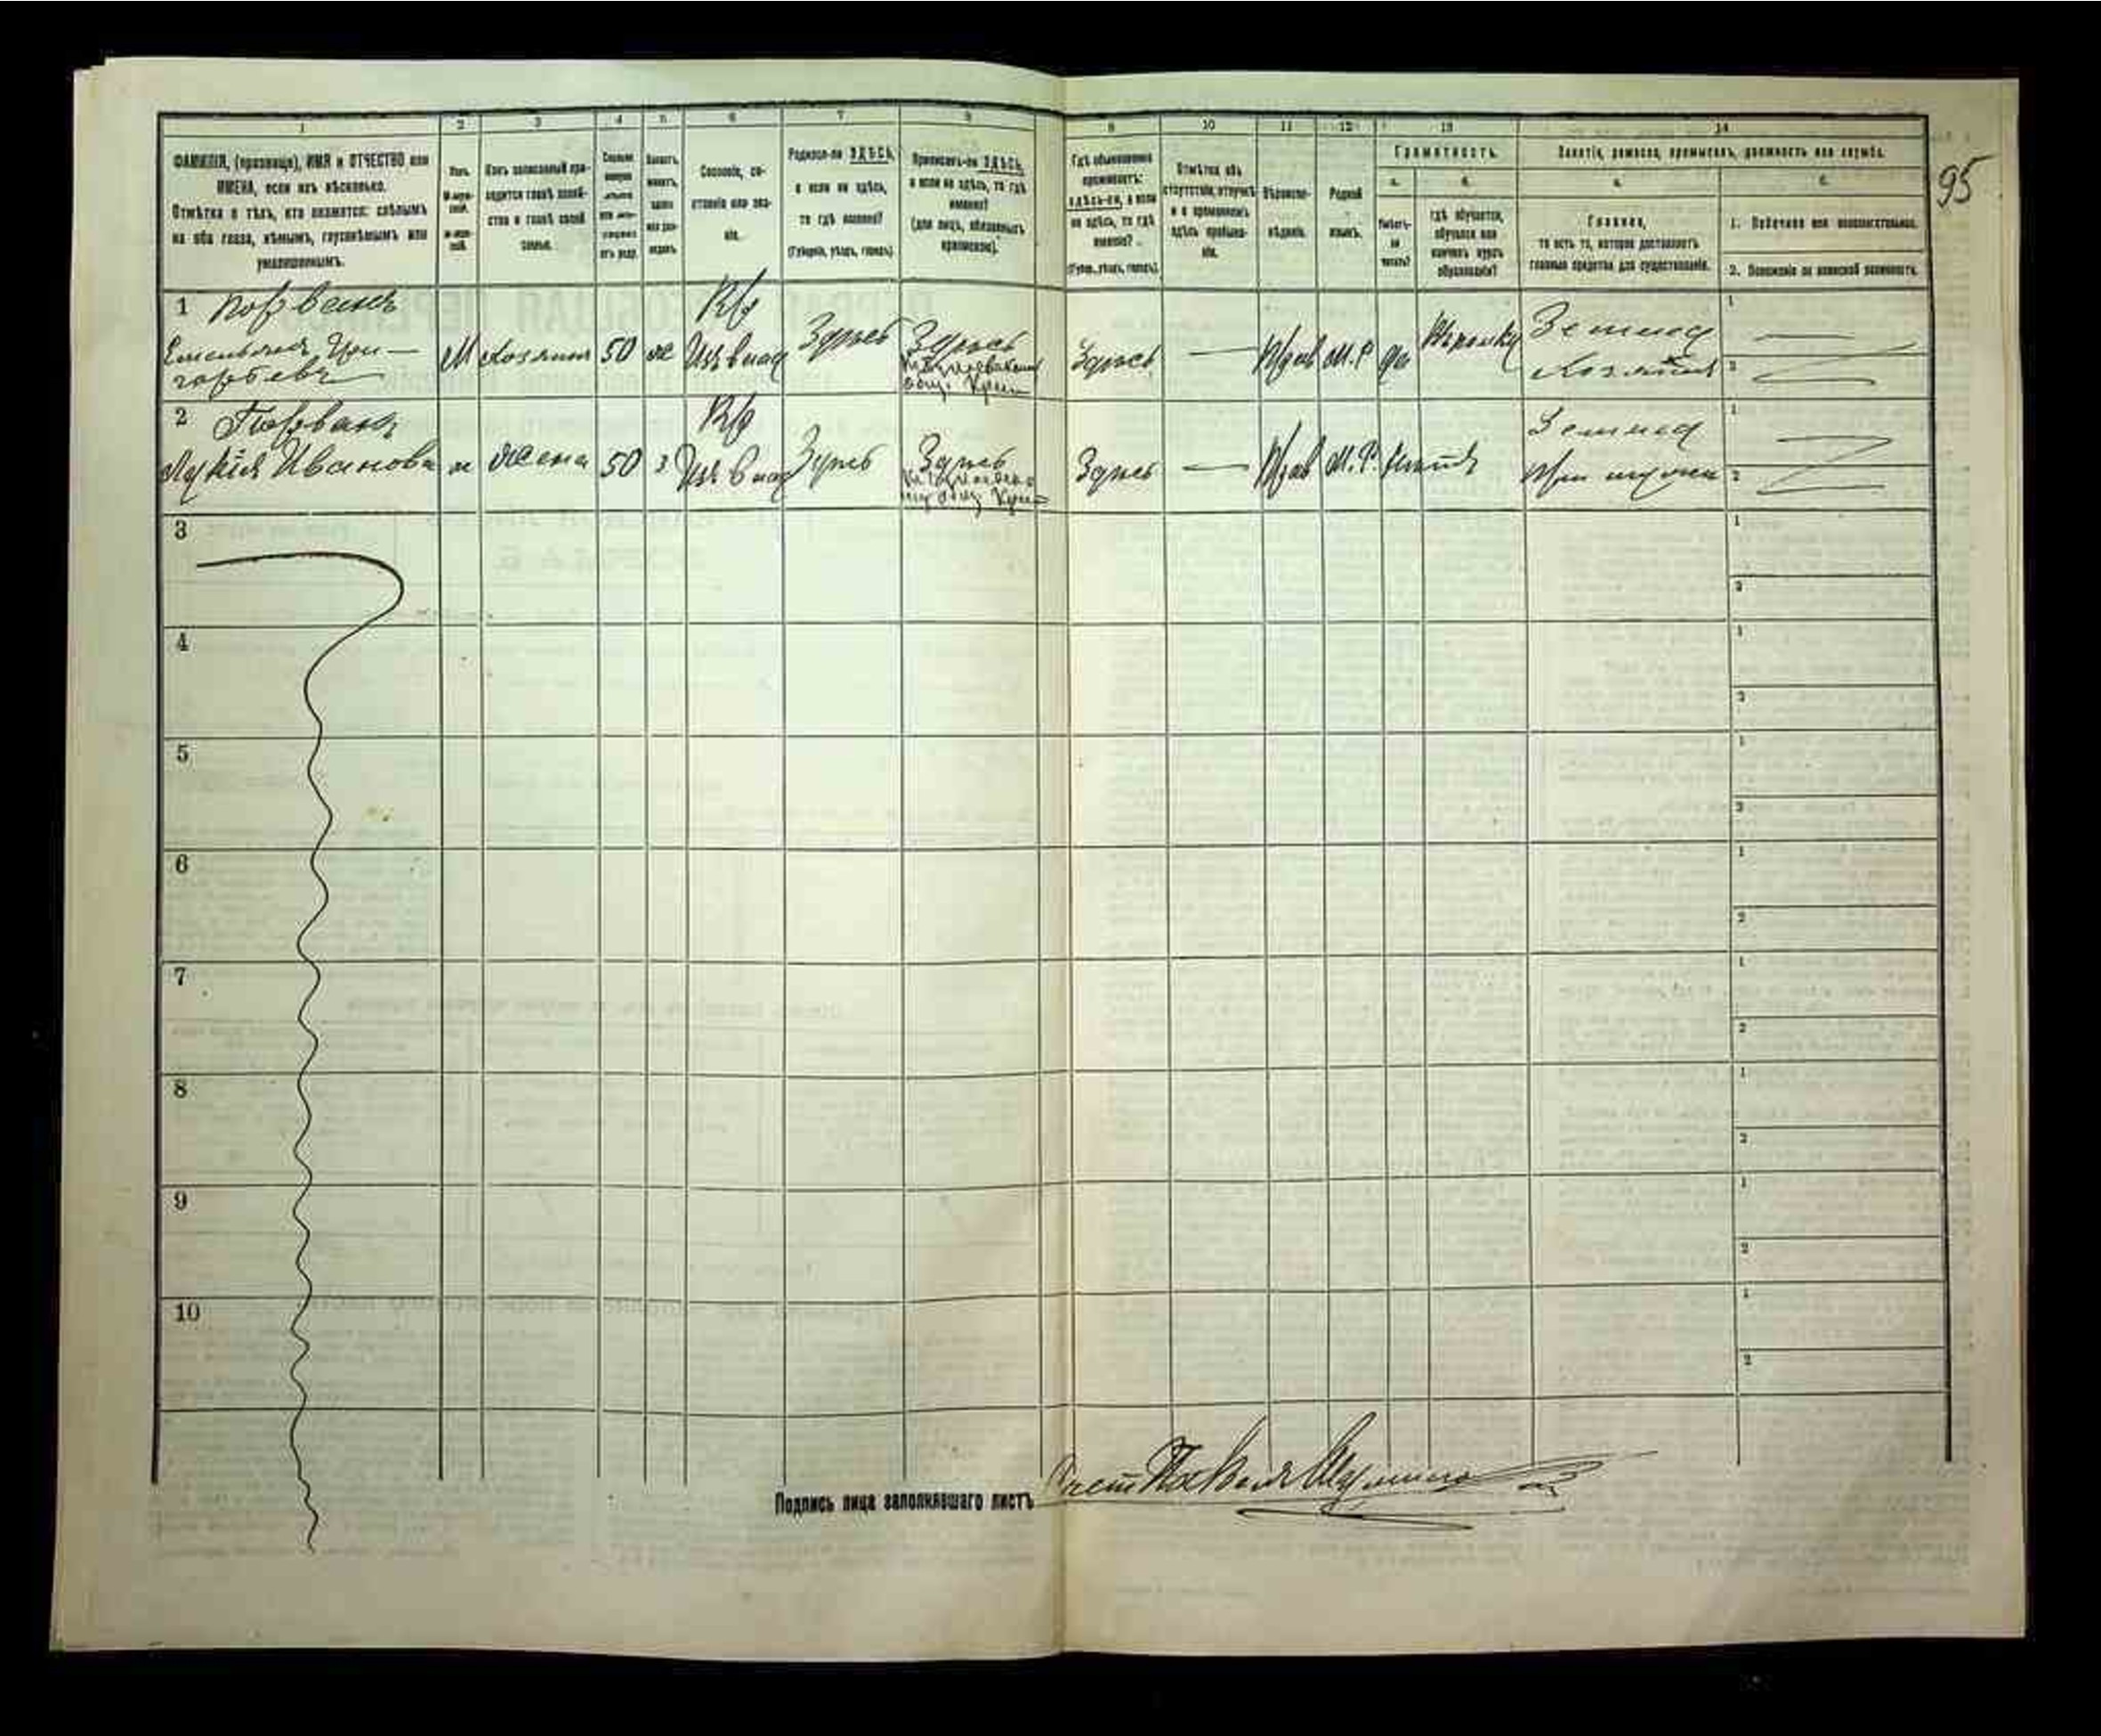 95
1 2 3 4 5 6 7 8 9 10 11 12 13 14
ФАМИЛІЯ, (прозвище), ИМЯ и ОТЧЕСТВО или
ИМЕНА, если ихъ нѣсколько.
Отмѣтка о тѣхъ, кто окажется: слѣпымъ
на оба глаза, нѣмымъ, глухонѣмымъ или
умалишеннымъ.
Полъ.
М-муж-
ской.
Ж-жен-
скій.
Какъ записанный при-
ходится главѣ хозяй-
ства и главѣ своей
семьи.
Сколько
минуло
лѣтъ
или мѣ-
сяцевъ
отъ роду.
Холостъ,
женатъ,
вдовъ
или раз-
веденъ.
Сословіе, со-
стояніе или зва-
ніе.
Родился-ли ЗДѢСЬ,
а если не здѣсь,
то гдѣ именно?
(Губернія, уѣздъ, городъ).
Приписанъ-ли ЗДѢСЬ,
а если не здѣсь, то гдѣ
именно?
(для лицъ, обязанныхъ
припискою).
Гдѣ обыкновенно
проживаетъ:
здѣсь-ли, а если
не здѣсь, то гдѣ
именно?
(Губер., уѣздъ, городъ).
Отмѣтка объ
отсутствіи, отлучкѣ
и о временномъ
здѣсь пребыва-
ніи.
Вѣроиспо-
вѣданіе.
Родной
языкъ.
Грамотность.
а.
Умѣетъ-
ли
читать?
б.
гдѣ обучается,
обучался или
кончилъ курсъ
образованія?
Занятіе, ремесло, промыселъ, должность или служба.
а.
Главное,
то есть то, которое доставляетъ
главныя средства для существованія.
б.
1. Побочное или вспомогательное.
2. Положеніе по воинской повинности.
1
Емельянъ Гри-
горьевъ
М Хозяинъ 50 ж
Кр
Изъ влад
Здѣсь Здѣсь
Здѣсь — Прав М.Р да
Земл
Хозяинъ
1
2
2
Лукія Иванова ж жена 50 з
Кр
Изъ влад
Здѣсь Здѣсь
Здѣсь — Прав М.Р.
Земл
При мужѣ
1
2
3 1
2
4 1
2
5 1
2
6 1
2
7 1
2
8 1
2
9 1
2
10 1
2
Подпись лица заполнявшаго листъ